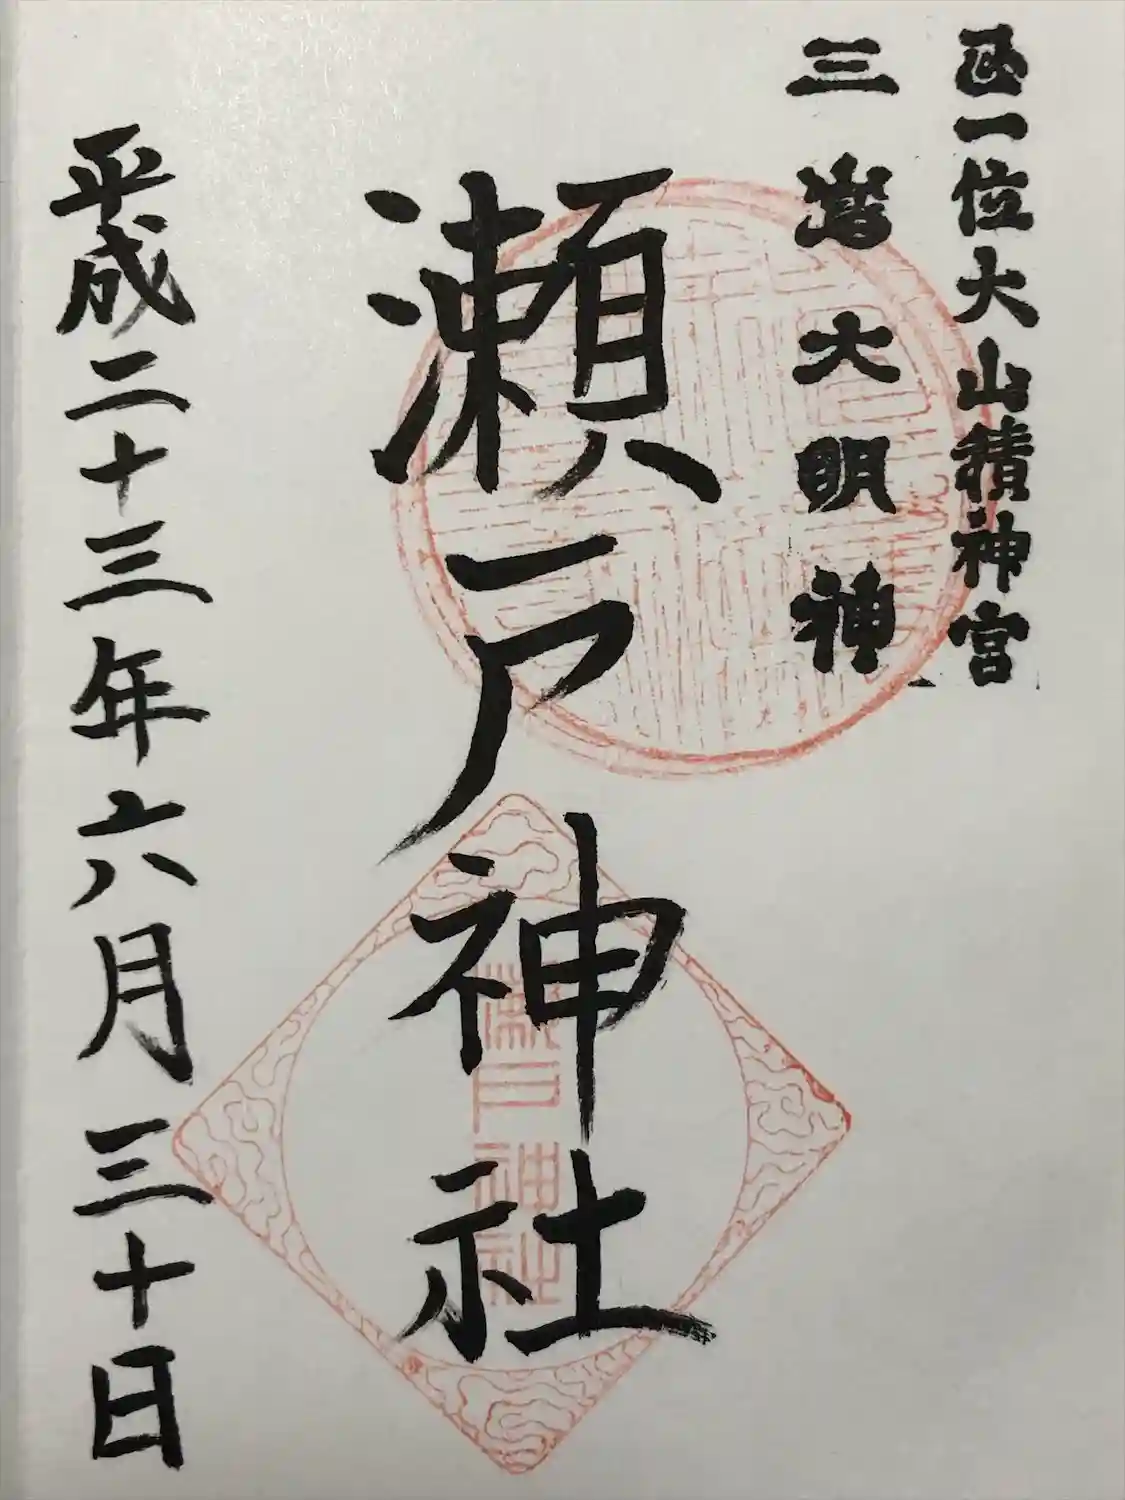 正一位大山積神宮
三嶌大明神
瀬戸神社
瀬戸神社
平成二十三年六月三十日